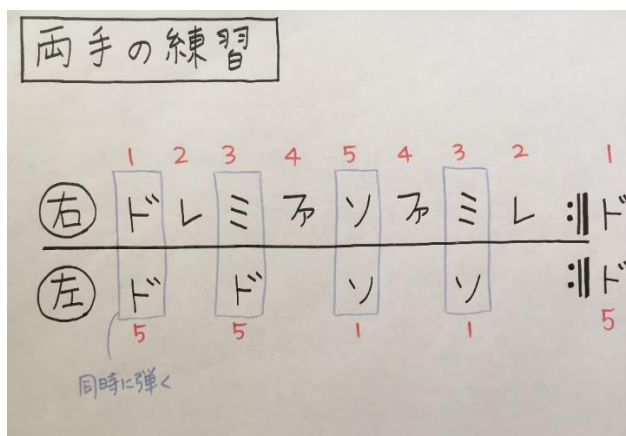 両手の練習
1 2 3 4 5 4 3 2 1
右 ド レ ミ ファ ソ ファ ミ レ :|| ド
左 ド ド ソ ソ :|| ド
5 5 1 1 5
同時に弾く